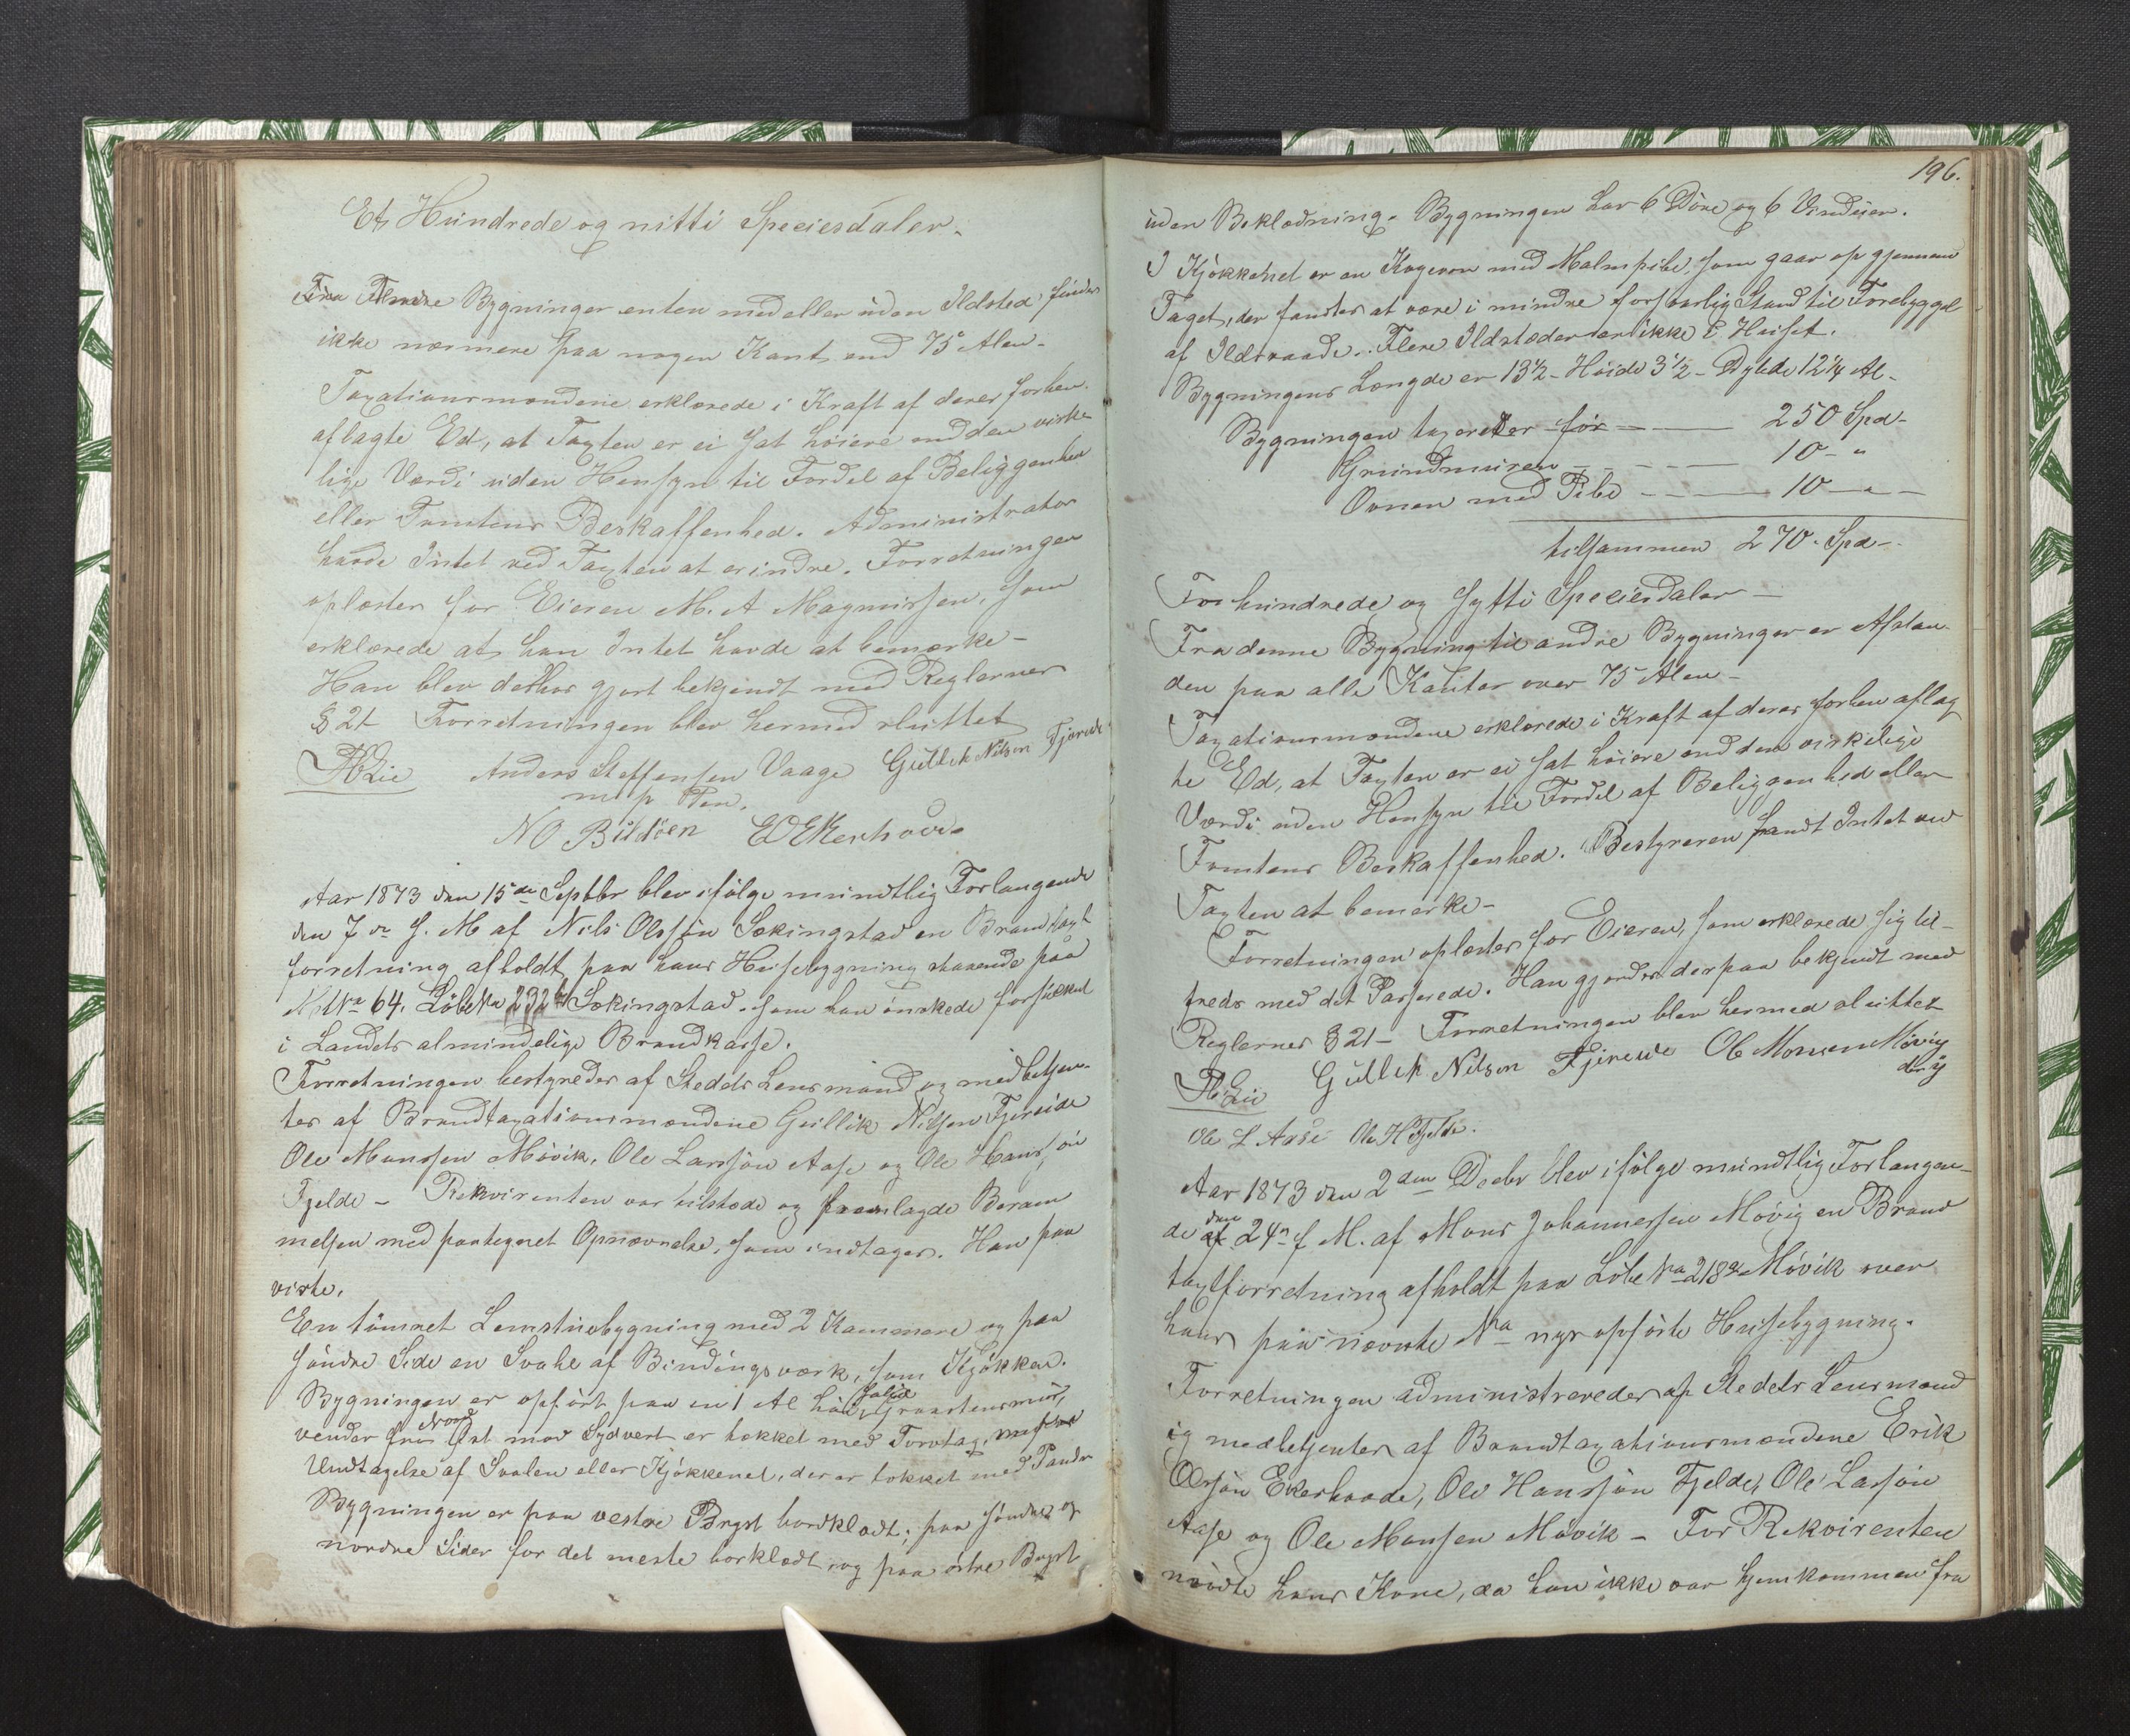 Et Hundrede og nitti Speciesdaler.
Fra Andre Bygninger enten med eller uden Ildsted findes
ikke nærmere paa nogen Kant end 75 Alen.
Taxationsmændene erklærede i Kraft af deres forhen
aflagte Ed, at Taxten er ei sat høiere end den virke
lige Værdi uden Hensyn til Fordel af Beliggenhed
eller Tomtens Beskaffenhed. Administrator
havde Intet ved Taxten at erindre. Forretningen
oplæstes for Eieren M. A Magnussen, som
erklærede at han Intet havde at bemærke –
Han blev derhos gjort bekjendt med Reglernes
§ 21 Forretningen blev hermed sluttet
Anders Steffensen Vaage Gullik Nilsen Fjereide
m p Pen.
N O Bildøen E O Ekerhovd
Aar 1873 den 15de Septbr blev ifølge mundtlig Forlangende
den 7de f. M af Nils Olssøn Sekingstad en Brandtaxt
forretning afholdt paa hans Husebygning staaende paa
M No 64. Løbe No 232 Sekingstad som han ønskede forsikret
i Landets almindelige Brandkasse.
Forretningen bestyredes af Stedets Lensmand og medbetjen-
tes af Brandtaxationsmændene Gullik Nilsen Fjereide
Ole Monssen Møvik, Ole Larssøn Aase og Ole Hanssøn
Fjelde – Rekvirenten var tilstede og fremlagde Beram
melsen med paategnet Opnævnelse, som indtages. Han paa
viste.
En tømret Lemstuebygning med 2 Kammere og paa
søndre Side en Svale af Bindingsværk, som Kjøkken.
Bygningen er opført paa en 1 Al høi solid Graasteensmur,
vender fra Nord Øst mod Sydvest er tækket med Torvtag, med
Undtagelse af Svalen eller Kjøkkenet, der er tækket med Pander
Bygningen er paa vestre Bryst bordklædt; paa søndre og
nordre Sider for det meste borklædt, og paa østre Bryst
196.
uden Beklædning. Bygningen har 6 Døre og 6 Vinduer.
I Kjøkkenet er en Kogeovn med Malmpibe, som gaar op gjennem
Taget, der fandtes at være i mindre forsvarlig Stand til Forebyggel
af Ildsvaade. Flere Ildstæder er ikke i Huset.
Bygningens Længde er 13½ – Høide 3½ – Dybde 12¼ Al –
Bygningen taxeredes for – – 250 Spd –
Grundmuren – – – – 10 – "
Ovnen med Pibe – – – 10 – " –
tilsammen 270. Spd –
To hundrede og sytti Speciesdaler –
Fra denne Bygning til andre Bygninger er Afstan
den paa alle Kanter over 75 Alen –
Taxationsmændene erklærede i Kraft af deres forhen aflag
te Ed, at Taxten er ei sat høiere end den virkelige
Værdi uden Hensyn til Fordel af Beliggenhed eller
Tomtens Beskaffenhed. Bestyreren fandt Intet ved
Taxten at bemærke –
Forretningen oplæstes for Eieren, som erklærede sig til-
freds med det Passerede. Han gjordes derpaa bekjendt med
Reglernes § 21 – Forretningen blev hermed sluttet
Gullik Nilsen Fjereide Ole Monsen Møvig
Ole L Aase Ole H Fjelde.
Aar 1873 den 2den Decbr blev ifølge mundtlig Forlangen-
de den 24n f M. af Mons Johannessen Møvig en Brand
taxtforretning afholdt paa Løbe No 218 Møvik over
hans paa nævnte No nys opførte Husebygning.
Forretningen administreredes af Stedets Lensmand
og medbetjentes af Brandtaxationsmændene Erik
Olssøn Ekerhovde, Ole Hanssøn Fjelde, Ole Larssøn
Aase og Ole Monsen Møvik – For Rekvirenten
mødte hans Kone, da han ikke var hjemkommen fra